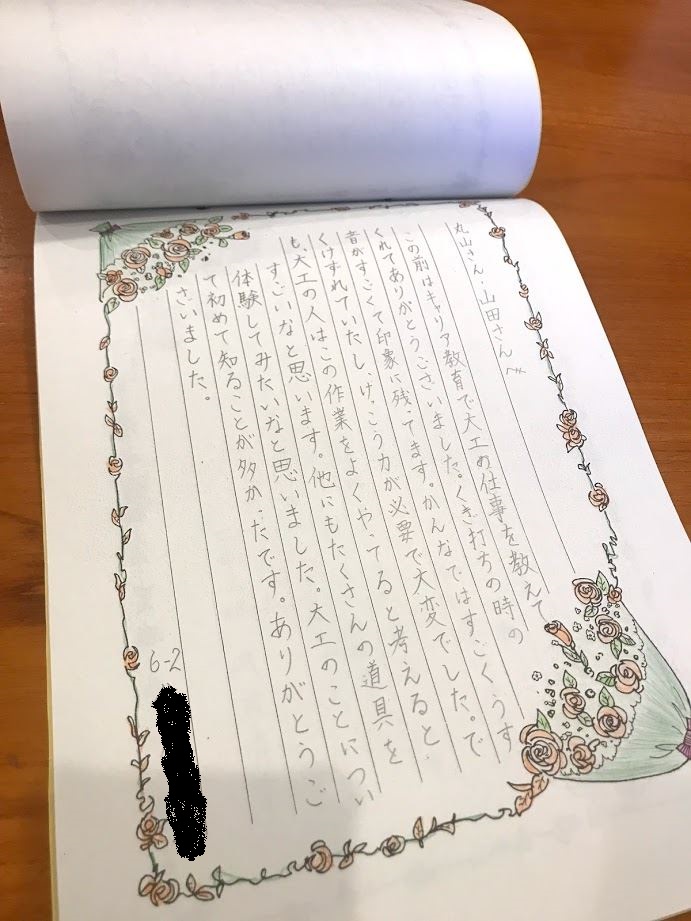 丸山さん・山田さんへ
この前はキャリア教育で大工の仕事を教えて
くれてありがとうございました。くぎ打ちの時の
音がすごくて印象に残ってます。かんなではすごくうす
くけずれていたし、けっこう力が必要で大変でした。で
も、大工の人はこの作業をよくやってると考えると、
すごいなと思います。他にもたくさんの道具を
体験してみたいなと思いました。大工のことについ
て初めて知ることが多かったです。ありがとうご
ざいました。
6-2